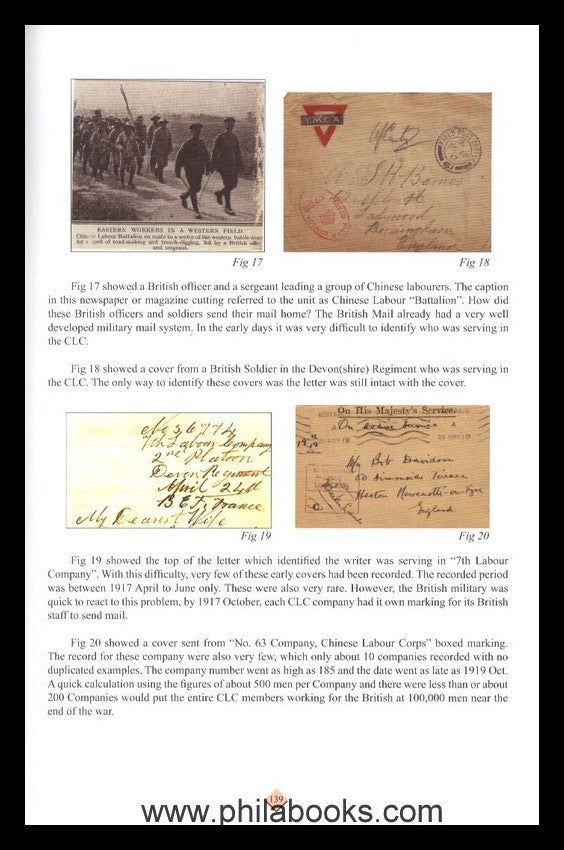 EASTERN WORKERS IN A WESTERN FIELD.
Chinese Labour Battalion en route to a sector of the western battle-front
for a spell of road-making and trench-digging, led by a British officer
and sergeant.
Fig 17
Y.M.C.A.
England
Fig 18
Fig 17 showed a British officer and a sergeant leading a group of Chinese labourers. The caption
in this newspaper or magazine cutting referred to the unit as Chinese Labour “Battalion”. How did
these British officers and soldiers send their mail home? The British Mail already had a very well
developed military mail system. In the early days it was very difficult to identify who was serving in
the CLC.
Fig 18 showed a cover from a British Soldier in the Devon(shire) Regiment who was serving in
the CLC. The only way to identify these covers was the letter was still intact with the cover.
No 36774
7th Labour Company
2nd Platoon
Devon Regiment
April 24th
B.E.F. France
My Dearest Wife
Fig 19
On His Majesty's Service.
On Active Service
Mr Bob Davidson
Newcastle-on-Tyne
England
Fig 20
Fig 19 showed the top of the letter which identified the writer was serving in “7th Labour
Company”. With this difficulty, very few of these early covers had been recorded. The recorded period
was between 1917 April to June only. These were also very rare. However, the British military was
quick to react to this problem, by 1917 October, each CLC company had it own marking for its British
staff to send mail.
Fig 20 showed a cover sent from “No. 63 Company, Chinese Labour Corps” boxed marking.
The record for these company were also very few, which only about 10 companies recorded with no
duplicated examples. The company number went as high as 185 and the date went as late as 1919 Oct.
A quick calculation using the figures of about 500 men per Company and there were less than or about
200 Companies would put the entire CLC members working for the British at 100,000 men near the
end of the war.
139
www.philabooks.com